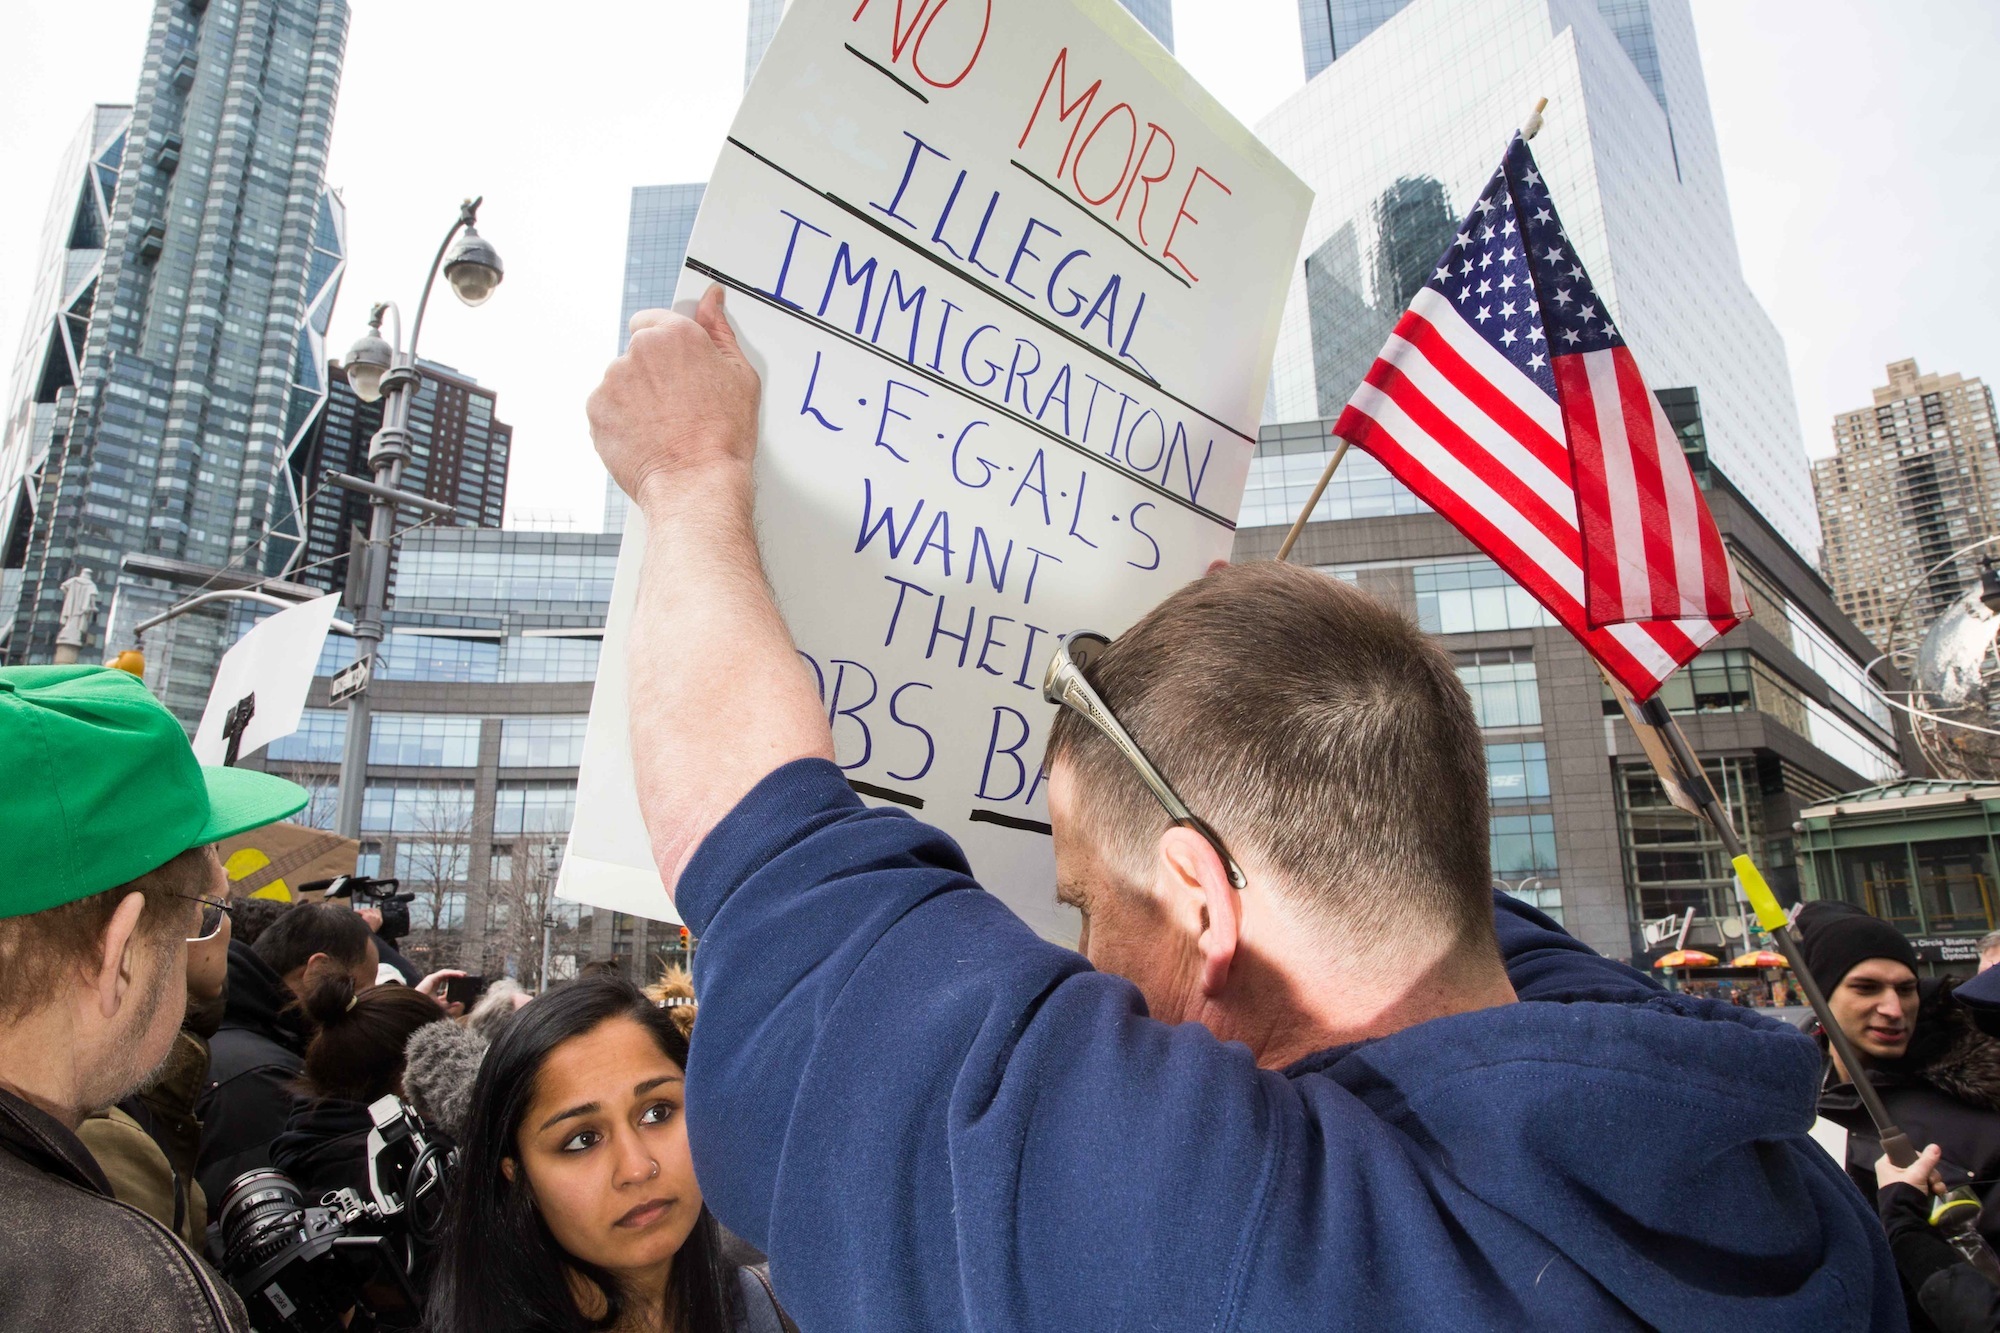 NO MORE
ILLEGAL
IMMIGRATION
L·E·G·A·L·S
WANT
THEI
OBS BA
JAZZ
Circle Station
Uptown